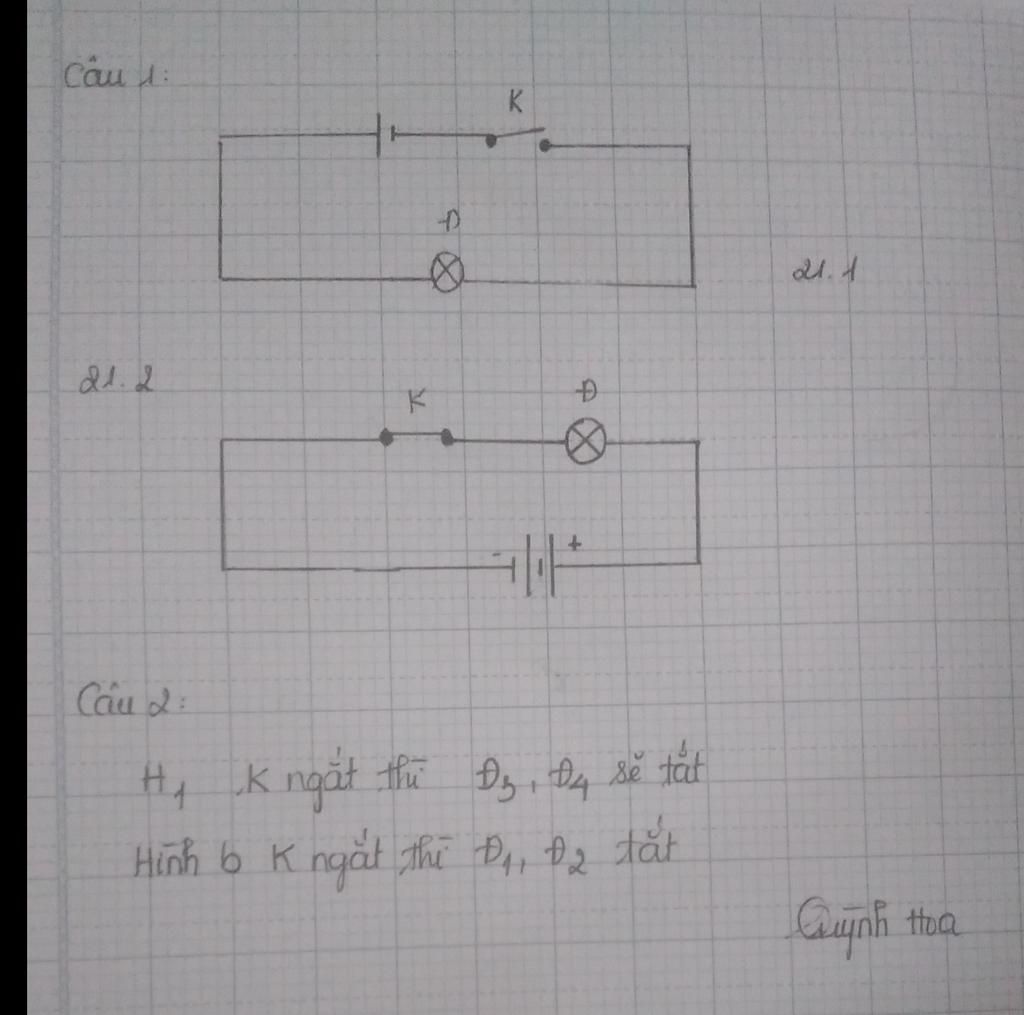 Câu 1:
K
Đ
21.1
21.2
K
Đ
- +
Câu 2:
H1 K ngắt thì Đ3, Đ4 sẽ tắt
Hình b K ngắt thì Đ1, Đ2 tắt
Quỳnh Hoa